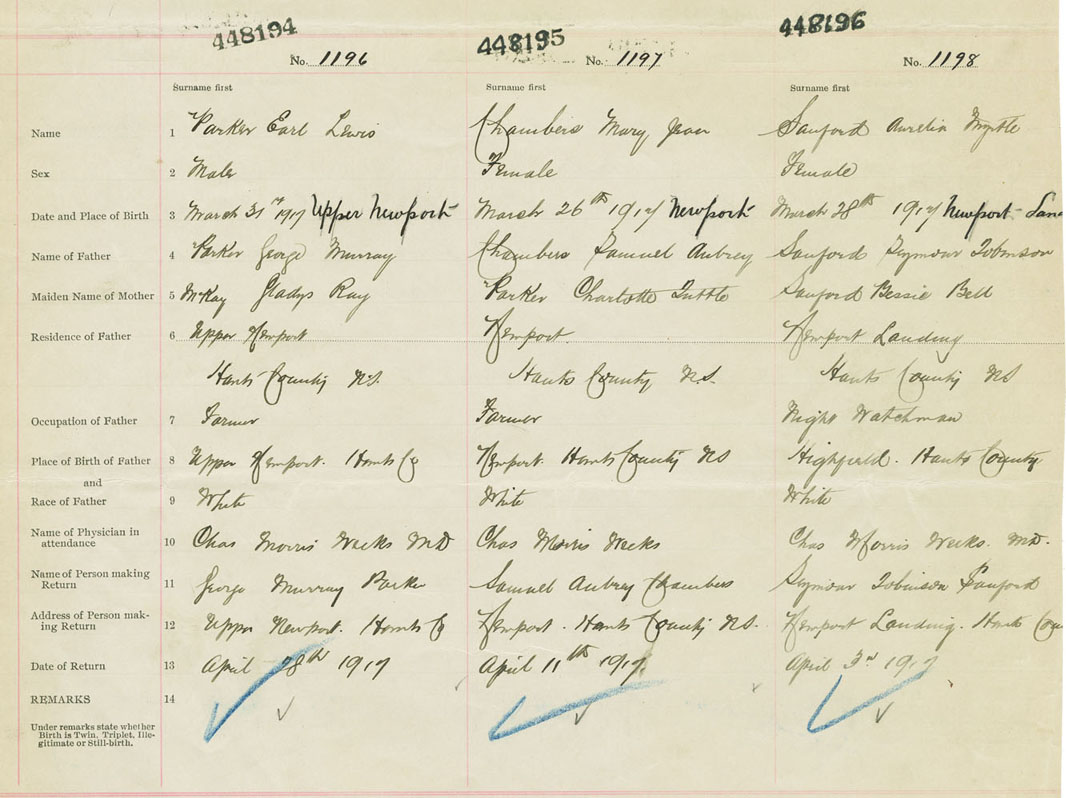 448194 448195 448196
No. 1196 No. 1197 No. 1198
Surname first Surname first Surname first
Name 1 Parker Earl Lewis Chambers Mary Jean Sanford Aurelia Myrtle
Sex 2 Male Female Female
Date and Place of Birth 3 March 31 1917 Upper Newport March 26th 1917 Newport March 28th 1917 Newport Land
Name of Father 4 Parker George Murray Chambers Samuel Aubrey Sanford Seymour
Maiden Name of Mother 5 McKay Gladys Ray Parker Charlotte Tuttle Sanford Bessie Bell
Residence of Father 6 Upper Newport Newport. Newport Landing
Hants County N.S. Hants County N.S. Hants County NS
Occupation of Father 7 Farmer Farmer Night Watchman
Place of Birth of Father 8 Upper Newport. Hants Co Newport. Hants County NS Highfield. Hants County
and
Race of Father 9 White White White
Name of Physician in
attendance 10 Chas Morris Weeks MD Chas Morris Weeks Chas Morris Weeks. MD.
Name of Person making
Return 11 George Murray Parker Samuel Aubrey Chambers Seymour Sanford
Address of Person mak-
ing Return 12 Upper Newport. Hants Co Newport. Hants County N.S. Newport Landing. Hants Cou
Date of Return 13 April 28th 1917 April 11th 1917. April 3rd 1917
REMARKS 14
Under remarks state whether
Birth is Twin, Triplet, Ille-
gitimate or Still-birth.